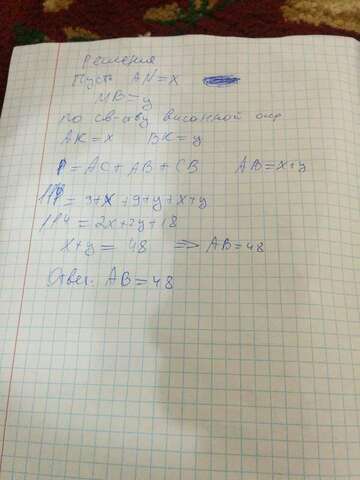 Решения
Пусть AN=x
MB=y
по св-ву вписанной окр
AK=x BK=y
P=AC+AB+CB AB=x+y
114=9+x+9+y+x+y
114=2x+2y+18
x+y=48 => AB=48
Ответ. AB=48